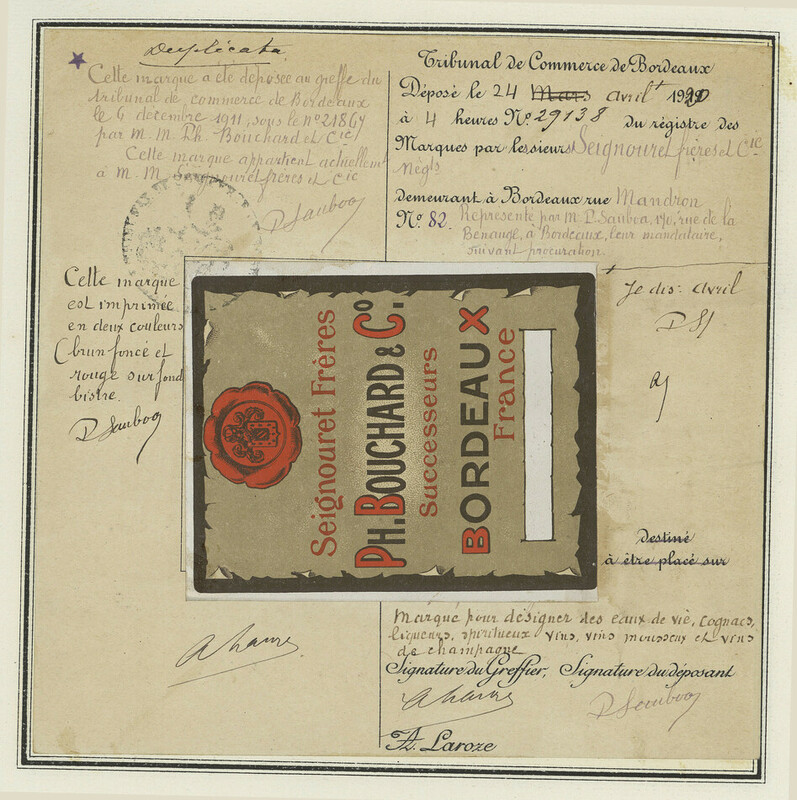 Duplicata
Cette marque a été déposée au greffe du
tribunal de commerce de Bordeaux
le 6 décembre 1911, sous le no 21867
par M. M. Ph. Bouchard et Cie
Cette marque appartient actuellement
à M. M. Seignouret frères et Cie
P Sauboa
Cette marque
est imprimée
en deux couleurs
(brun foncé et
rouge sur fond
bistre.
P Sauboa
Tribunal de Commerce de Bordeaux
Déposé le 24 Mars avril 1920
à 4 heures No. 29138 du régistre des
Marques par les sieurs Seignouret frères et Cie
Négts
demeurant à Bordeaux rue Mandron
No. 82. Représenté par M. P. Sauboa, rue de la
Benauge, à Bordeaux, leur mandataire,
suivant procuration
Je dis: avril
P S
Seignouret Frères
PH. BOUCHARD & Co.
Successeurs
BORDEAUX
France
Destiné
à être placé sur
Marque pour désigner des eaux de vie, cognacs,
liqueurs, spiritueux vins, vins mousseux et vins
de champagne
Signature du Greffier, Signature du déposant
P Sauboa
Laroze